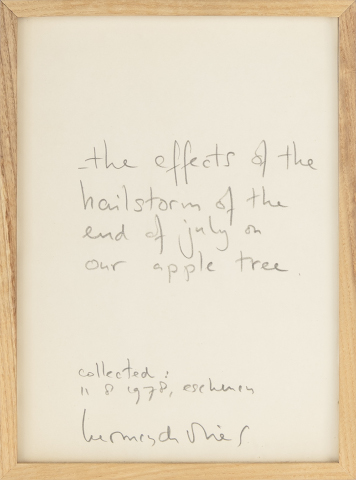 the effects of the
hailstorm of the
end of july on
our apple tree.
collected:
11 8 1978, eschenau
herman de vries